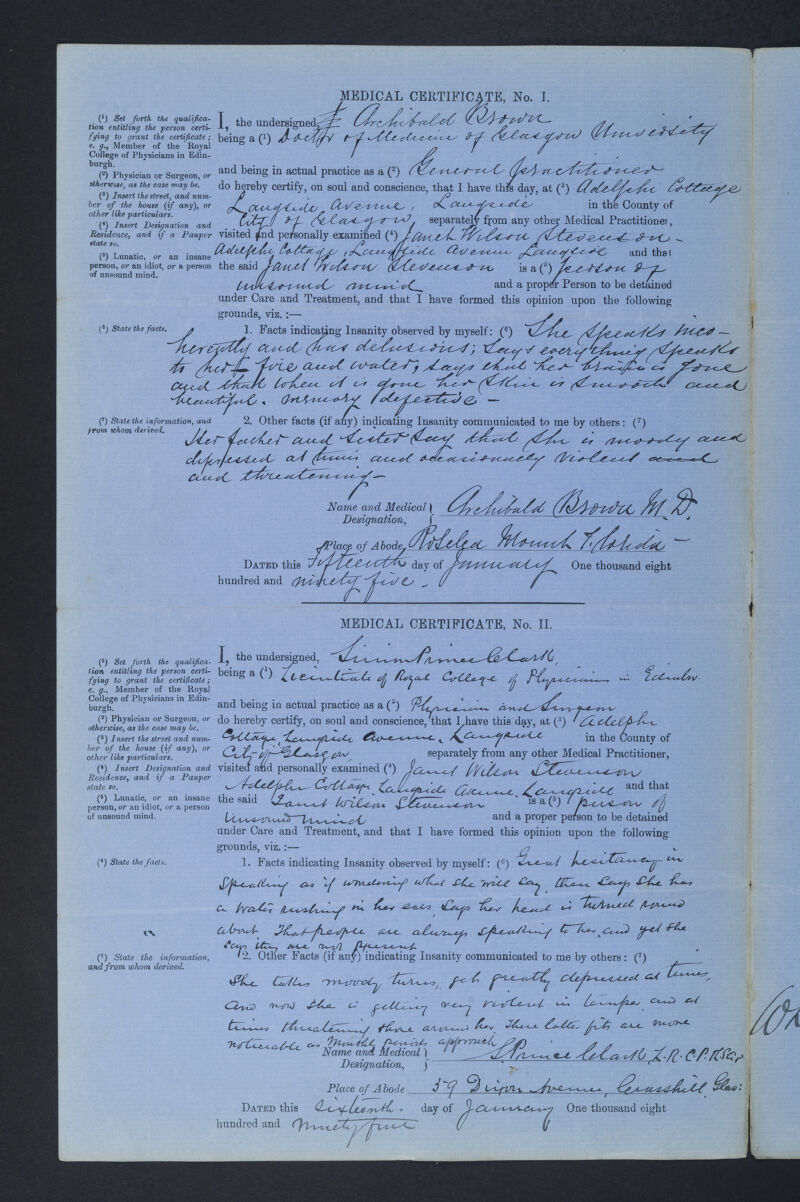 MEDICAL CERTIFICATE, No. I.
(1) Set forth the qualifica-
tion entitling the person certi-
fying to grant the certificate;
e. g., Member of the Royal
College of Physicians in Edin-
burgh.
(2) Physician or Surgeon, or
otherwise, as the case may be.
(3) Insert the street, and num-
ber of the house (if any), or
other like particulars.
(4) Insert Designation and
Residence, and if a Pauper
state so.
(5) Lunatic, or an insane
person, or an idiot, or a person
of unsound mind.
I, the undersigned, Archibald Brown
being a (1) Doctor of Medicine of Glasgow University
and being in actual practice as a (2) General practitioner
do hereby certify, on soul and conscience, that I have this day, at (3) Adelphi Cottage
Langside Avenue, Langside in the County of
City of Glasgow, separately from any other Medical Practitioner,
visited and personally examined (4) Janet Wilson Stevenson
Adelphi Cottage, Langside Avenue Langside and that
the said Janet Wilson Stevenson is a (5) person of
unsound mind and a proper Person to be detained
under Care and Treatment, and that I have formed this opinion upon the following
grounds, viz. :—
(6) State the facts.
1. Facts indicating Insanity observed by myself: (6) She speaks inco-
herently and has delusions; says everything speaks
to her – fire and water, says that her brain is gone
and that when it is gone her skin is smooth and
beautiful. memory defective –
(7) State the information, and
from whom derived.
2. Other facts (if any) indicating Insanity communicated to me by others: (7)
Her father and sister say that she is moody and
depressed at times and occasionally violent and
and threatening –
Name and Medical Designation, Archibald Brown M.D.
Place of Abode, Roselea Mount Florida –
DATED this Fifteenth day of January One thousand eight
hundred and ninety five –
MEDICAL CERTIFICATE, No. II.
(1) Set forth the qualifica-
tion entitling the person certi-
fying to grant the certificate;
e. g., Member of the Royal
College of Physicians in Edin-
burgh.
(2) Physician or Surgeon, or
otherwise, as the case may be.
(3) Insert the street and num-
ber of the house (if any), or
other like particulars.
(4) Insert Designation and
Residence, and if a Pauper
state so.
(5) Lunatic, or an insane
person, or an idiot, or a person
of unsound mind.
I, the undersigned, Prince Clark,
being a (1) Licentiate of Royal College of Physicians in Edinbr.
and being in actual practice as a (2) Physician and Surgeon
do hereby certify, on soul and conscience, that I have this day, at (3) Adelphi
Cottage, Langside Avenue, Langside in the County of
City of Glasgow, separately from any other Medical Practitioner,
visited and personally examined (4) Janet Wilson Stevenson
Adelphi Cottage Langside Avenue, Langside and that
the said Janet Wilson Stevenson is a (5) person of
unsound mind and a proper person to be detained
under Care and Treatment, and that I have formed this opinion upon the following
grounds, viz. :—
(6) State the facts.
1. Facts indicating Insanity observed by myself: (6) Great hesitancy in
speaking as if wondering what she will say, then says she has
a water rushing in her ears says her head is turned round
about. That people are always speaking to her, and yet she
says they are not present
(7) State the information,
and from whom derived.
2. Other Facts (if any) indicating Insanity communicated to me by others: (7)
She takes moody turns, gets greatly depressed at times,
and now she is getting very violent in temper and at
times threatening those around her, these latter fits are more
noticeable as monthly periods approach
Name and Medical Designation, S. Prince Clark, L.R.C.P.
Place of Abode 59 Dixon Avenue, Crosshill, Glas:
DATED this Sixteenth. day of January One thousand eight
hundred and ninety five